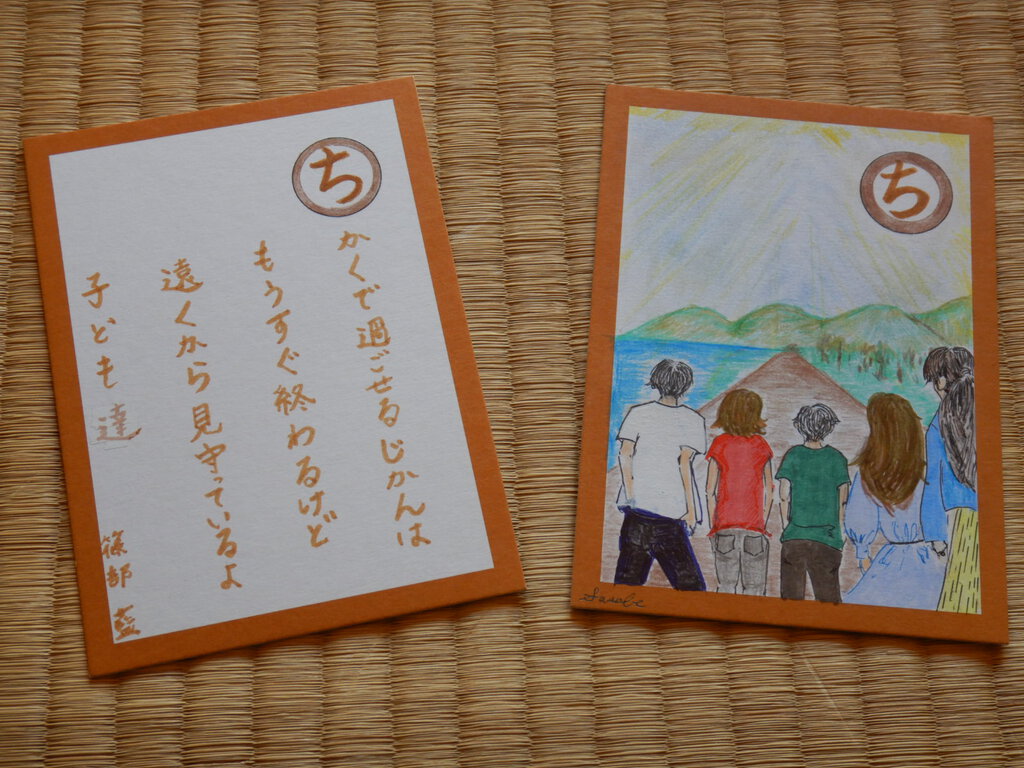 ち
かくで過ごせるじかんは
もうすぐ終わるけど
遠くから見守っているよ
子ども達
篠部 藍
ち